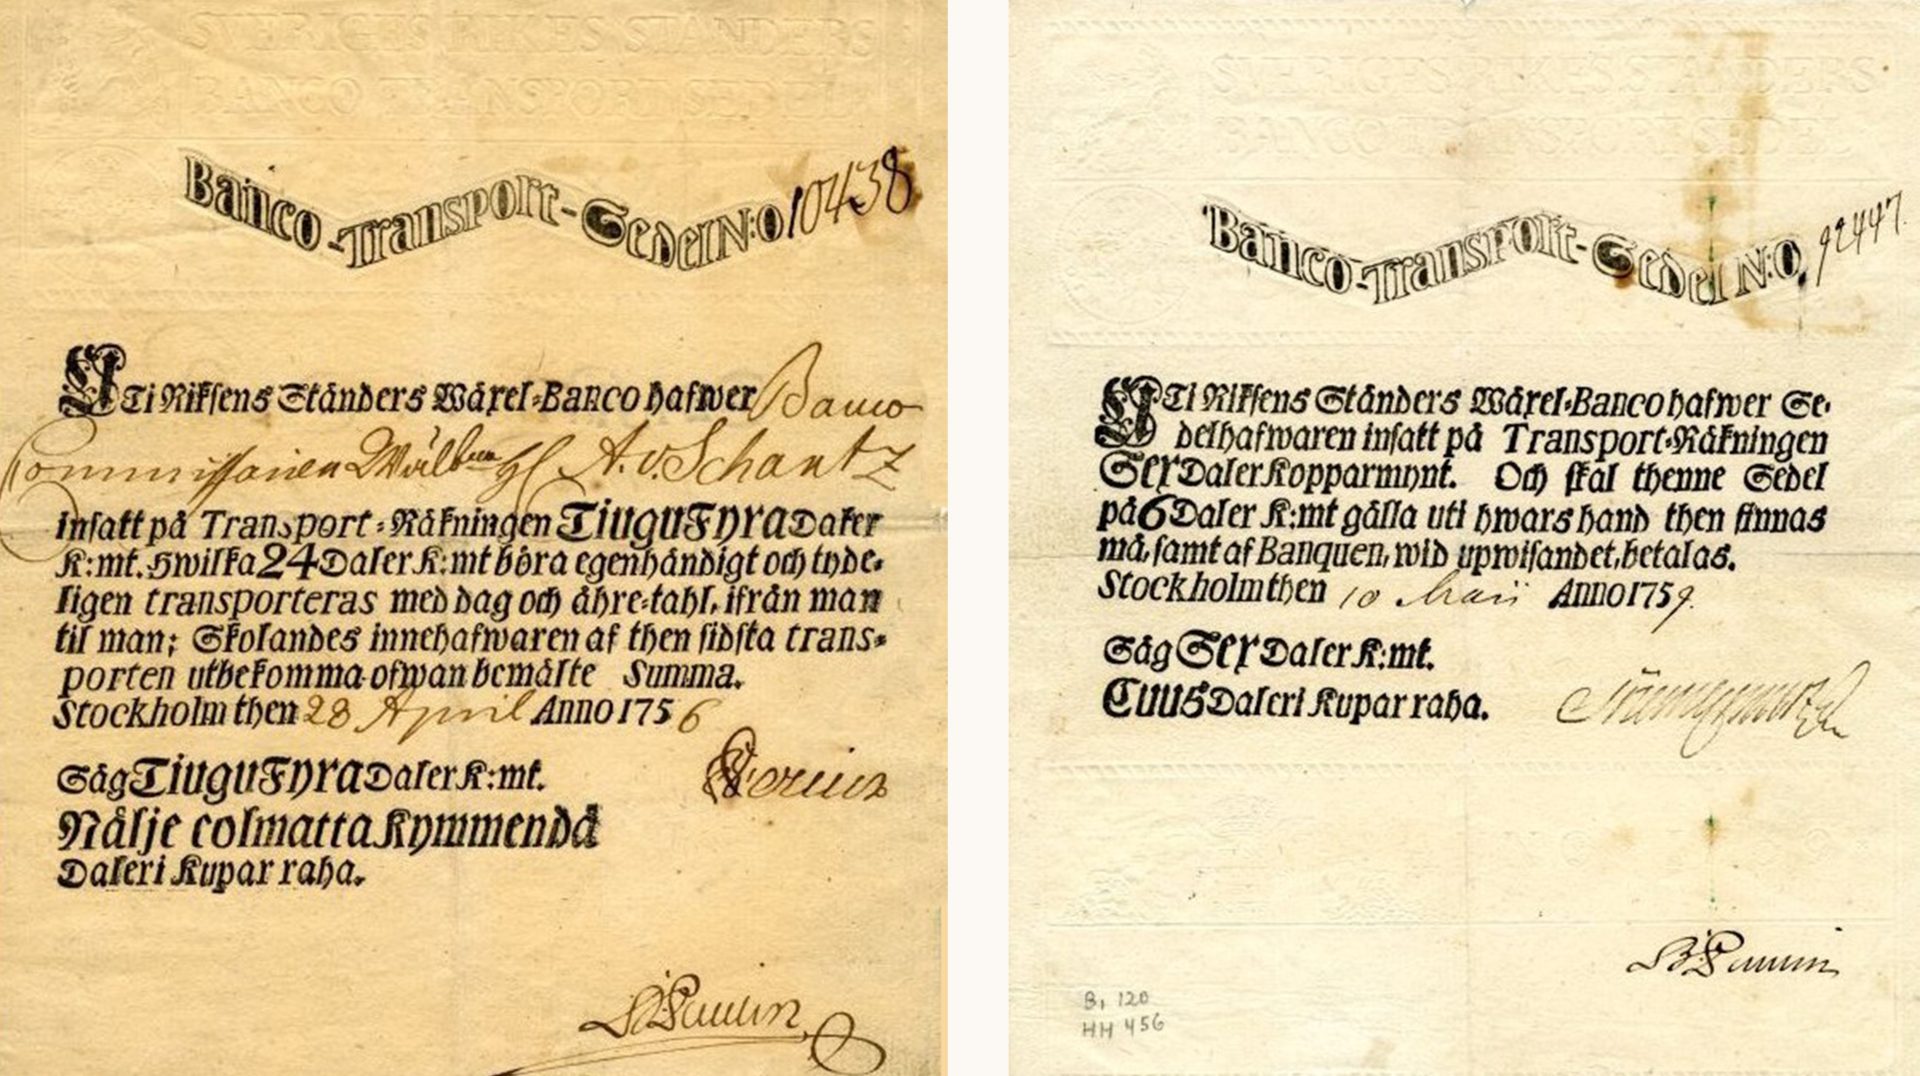 SVERIGES RIKES STÄNDERS
BANCO TRANSPORT SEDEL
Banco-Transport-Sedel N:o 10438
UTi Riksens Ständers Wäxel-Banco hafwer Banco
Commissarien A. v. Schantz
insatt på Transport-Räkningen TiuguFyra Daler
K:mt. Hwilka 24 Daler K:mt böra egenhändigt och tyde-
ligen transporteras med dag och åhre-tahl, ifrån man
til man; Skolandes innehafwaren af then sidsta trans-
porten utbekomma ofwanbemälte Summa.
Stockholm then 28 April Anno 1756
Säg TiuguFyra Daler K:mt.
Nälje colmatta Kymmendä
Daleri Kupar raha.
SVERIGES RIKES STÄNDERS
BANCO TRANSPORT SEDEL
Banco-Transport-Sedel N:o 92447.
UTi Riksens Ständers Wäxel-Banco hafwer Se-
delhafwaren insatt på Transport-Räkningen
Sex Daler Kopparmynt. Och skal thenne Sedel
på 6 Daler K:mt gälla uti hwars hand then finnas
må, samt af Banquen, wid upwisandet, betalas.
Stockholm then 10 Maii Anno 1759.
Säg Sex Daler K:mt.
Cuus Daleri Kupar raha.
B, 120
HH 456